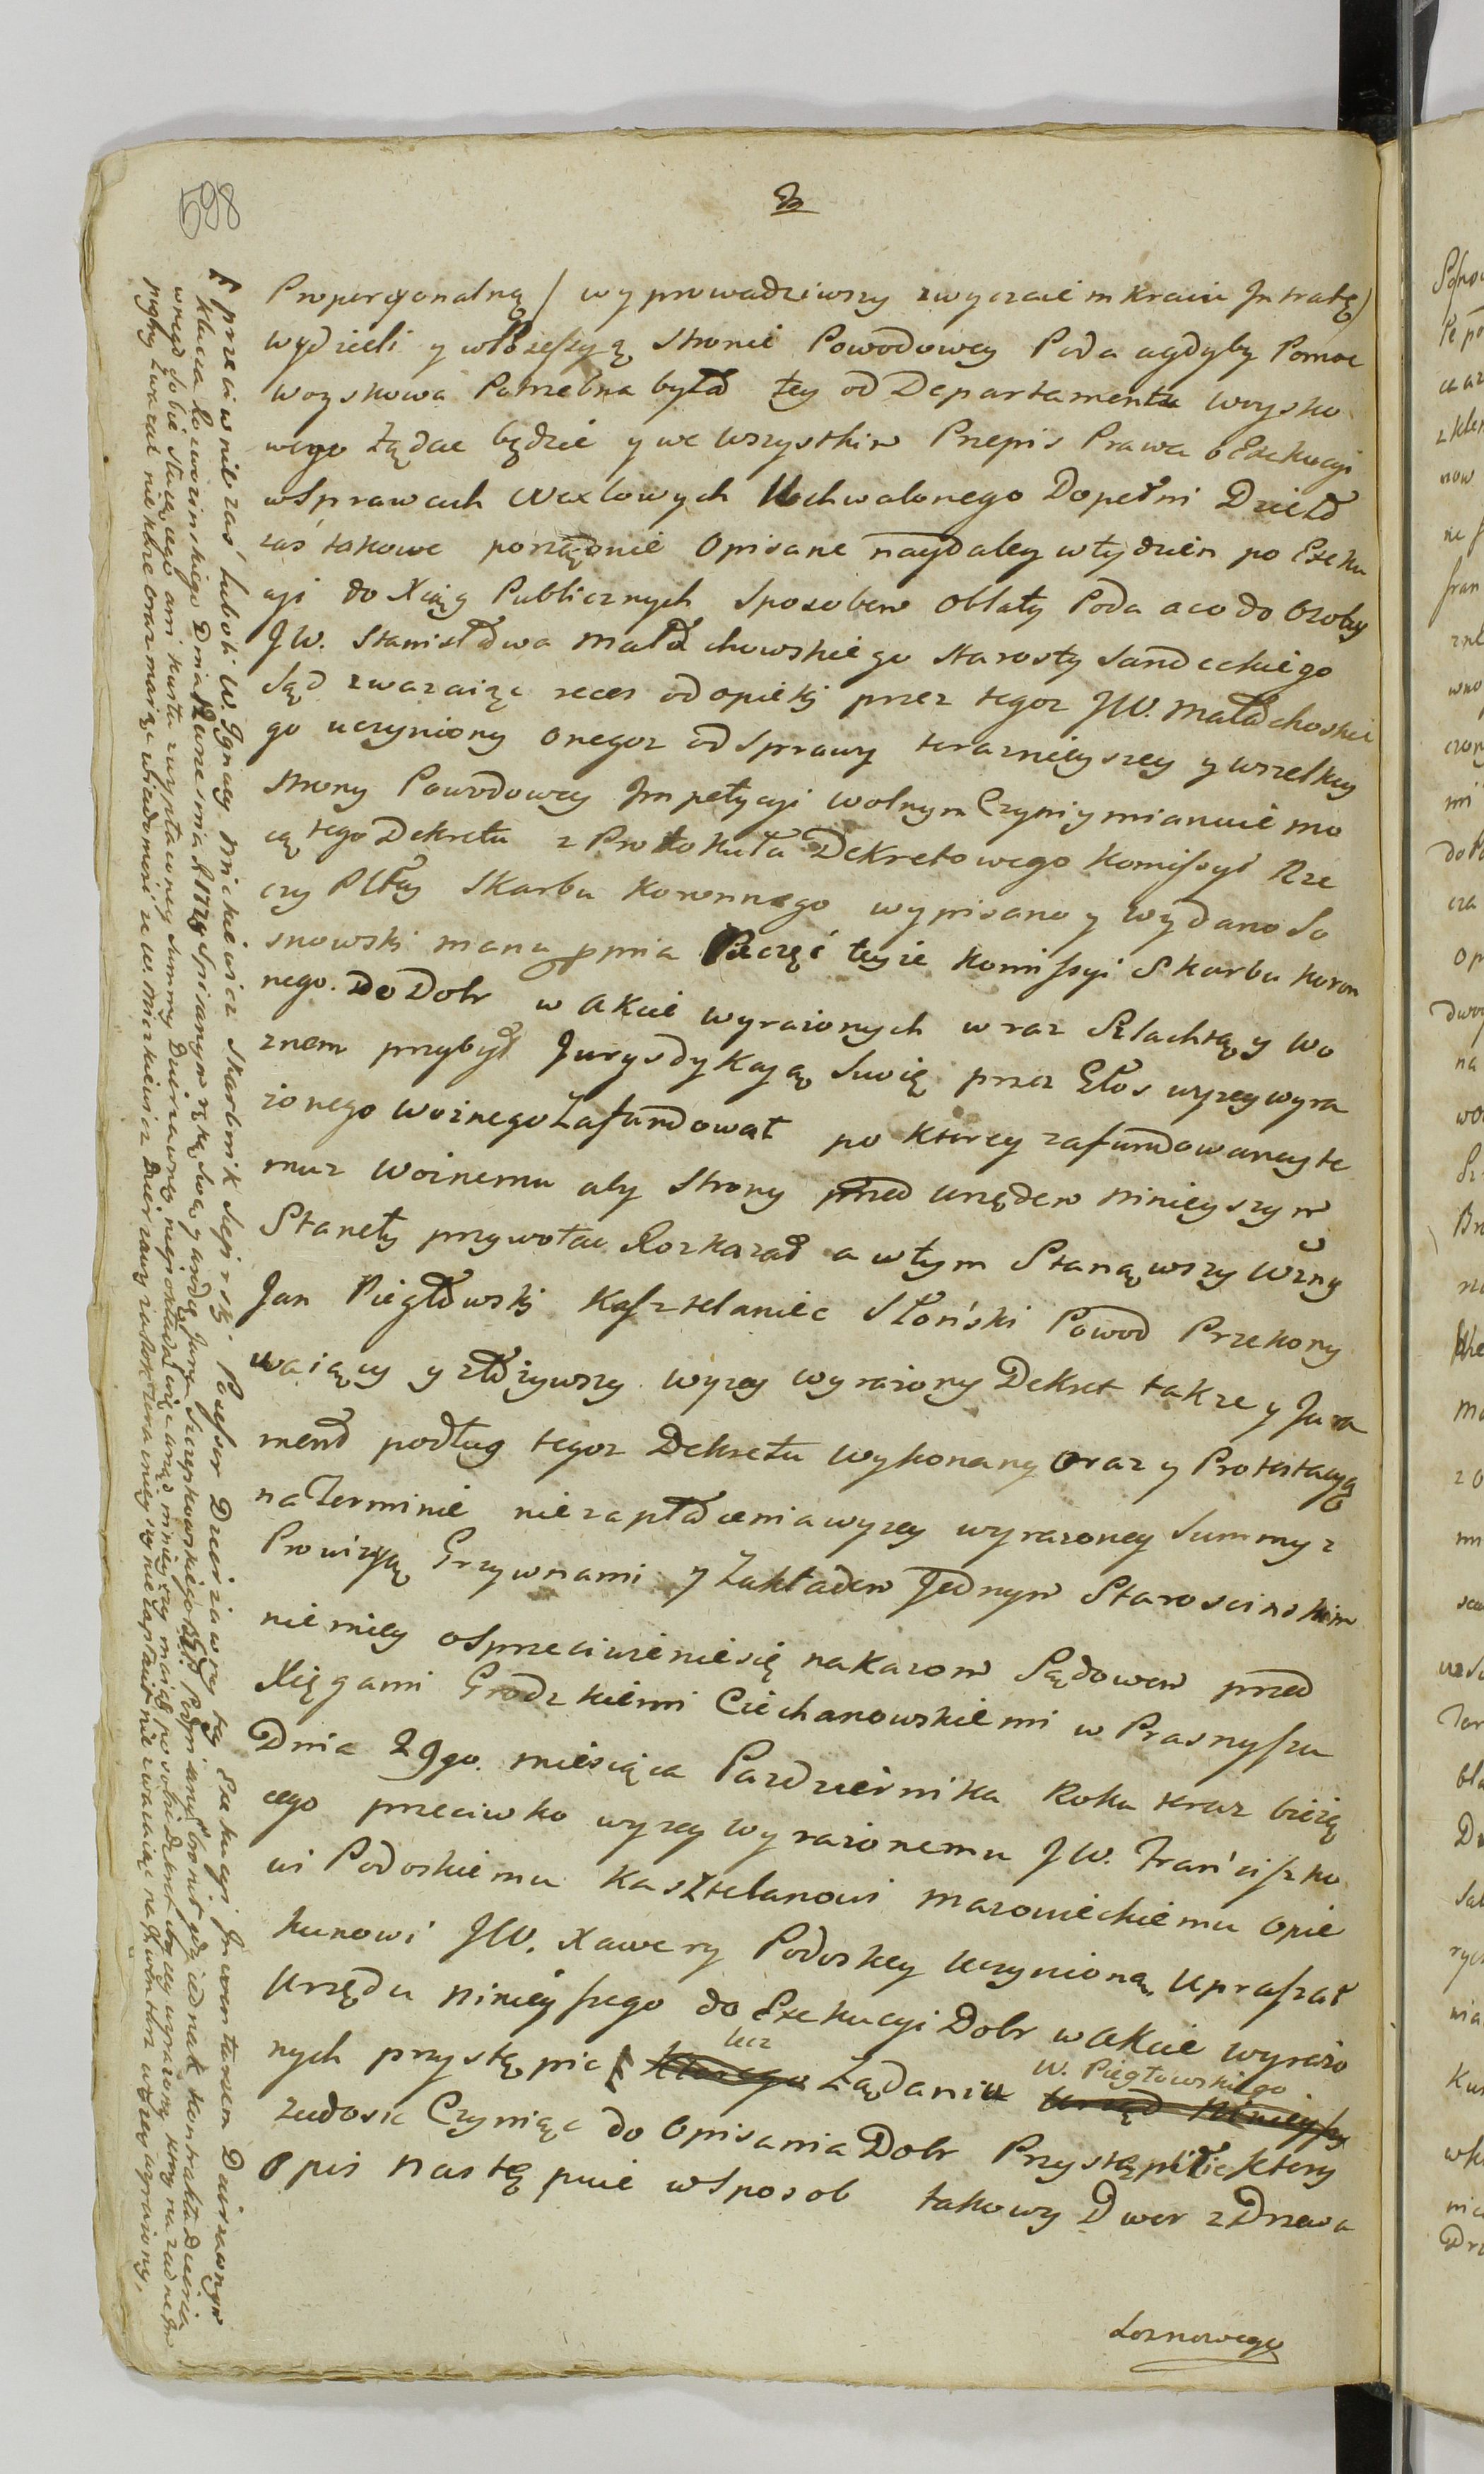 598
Proporcyonalną / wyprowadziwszy zwyczaiem kraiu Jntratę)
wydzieli y w Possessyą stronie Powodowey Poda a gdyby Pomoc
woyskowa Potrzebna była tey od Departamentu woysko
wego Żądac będzie y we wszystkim Przepis Prawa o Exekucyi
w Sprawach Wexlowych Uchwalonego Dopełni Dzieło
zaś takowe porządnie Opisane naydaley w tydzien po Exeku
cyi do Xiąg Publicznych Sposobem oblaty Poda a co do Osoby
JW. Stanisława Małachowskiego Starosty Sandeckiego
Sąd zwazaiąc reces od opieki przez tegoz JW. Małachoskie
go uczyniony onegoz od Sprawy terazniеyszey y wszelkiey
Strony Powodowey Jmpetycyi wolnym Czyni y mianuie mo
cą tego Dekretu z Protokułu Dekretowego Komissyi Rze
czy Pltey Skarbu Koronnego wypisano y wydano So
snowski manu ppria Pieczęć teyże Komissyi Skarbu Koron
nego. Do Dobr w Akcie wyrazonych wraz Szlachtą y Wo
znem przybył Jurysdykcyą Swoię przez Głos wyzey wyra
żonego woznego Zafundował po ktorey zafundowaney te
muz Woznemu aby Strony przed Urzędem ninieyszym
Staneły przywołac Rozkazał a w tym Stanąwszy Wżny
Jan Piegłowski Kasztelanic Słoński Powod Przekony
waiący y złożywszy wyzey wyrazony Dekret takze y Jura
ment podług tegoz Dekretu wykonany Oraz y Protestacyą
na Terminie niezapłacenia wyzey wyrazoney Summy z
Prowizyą Grzywnami y Zakładem Jednym Staroscinskim
niemiey o Sprzeciwienie się nakazom Sądowem przed
Xięgami Grodzkiemi Ciechanowskiemi w Prasnyszu
Dnia 29go. miesiąca Pazdziernika Roku teraz bieżą
cego przeciwko wyzey wyrażonemu JW. Franciszko
wi Podoskiemu Kasztelanowi mazowieckiemu Opie
kunowi JW. Xawery Podoskey Uczynioną, Upraszał
Urzędu ninieyszego do Exekucyi Dobr w Akcie wyrażo
nych przystępic ₣ Ktorego lecz Żądaniu Urząd Ninieyszy W. Piegłowskiego
zadosic Czyniąc do Opisania Dobr Przystąpił ktory
Opis nastę puie w Sposob takowy Dwor z Drzewa
Sosnowego
₣ przeciwnie zaś lubo li W. Jgnacy Mickiewicz Skarbnik Possesor Dzierzawny tey Exekucyi Jnwentarzem Dzierzawnym
klucza Dnia Września R 1779 Spisanym ręką Swą y Jmci Szczepkowskiego Podpisanym bronił gdy iednak kontraktu